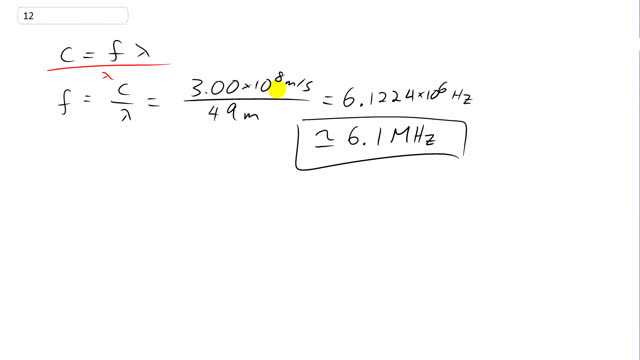 12
c = f λ
λ
f = c/λ = 3.00×10⁸ m/s / 49 m = 6.1224×10⁶ Hz
≃ 6.1 MHz